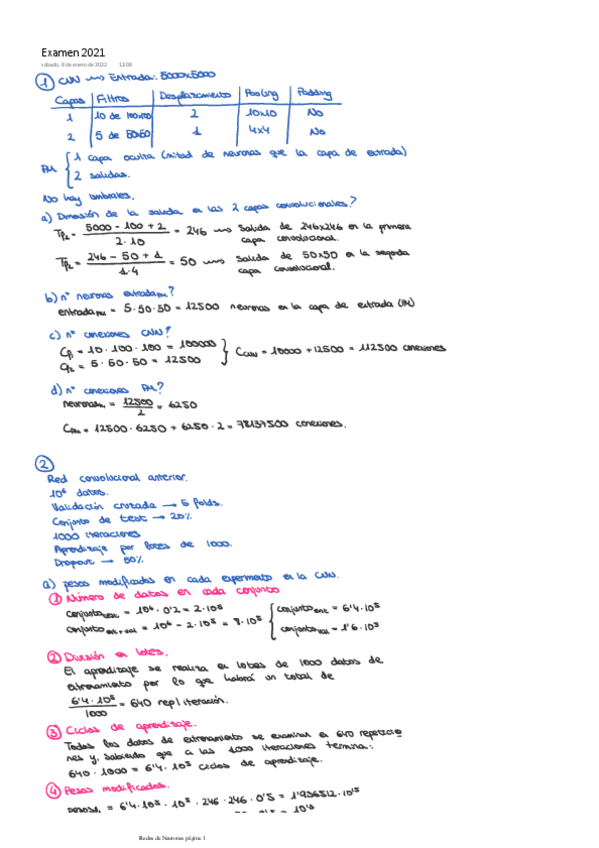 Examen 2021
sábado, 8 de enero de 2022 12:08
① CNN ⟿ Entrada: 5000x5000
Capas | Filtros | Desplazamiento | Pooling | Padding
1 | 10 de 100x100 | 2 | 10x10 | No
2 | 5 de 50x50 | 1 | 4x4 | No
PM { 1 capa oculta (mitad de neuronas que la capa de entrada)
2 salidas.
No hay umbrales.
a) Dimensión de la salida en las 2 capas convolucionales?
Tp₁ = (5000 - 100 + 2) / (2 · 10) = 246 ⟿ Salida de 246x246 en la primera capa convolucional.
Tp₂ = (246 - 50 + 1) / (1 · 4) = 50 ⟿ Salida de 50x50 en la segunda capa convolucional.
b) nº neuronas entrada PM?
entrada PM = 5 · 50 · 50 = 12500 neuronas en la capa de entrada (PM)
c) nº conexiones CNN?
C₁ = 10 · 100 · 100 = 100000
C₂ = 5 · 50 · 50 = 12500 } C CNN = 10000 + 12500 = 112500 conexiones
d) nº conexiones PM?
neuronas = 12500 / 2 = 6250
C PM = 12500 · 6250 + 6250 · 2 = 78137500 conexiones.
②
Red convolucional anterior.
10⁶ datos.
Validación cruzada → 5 folds.
Conjunto de test → 20%
1000 iteraciones
Aprendizaje por lotes de 1000.
Dropout → 50%
a) pesos modificados en cada experimento en la CNN.
① Número de datos en cada conjunto
conjunto test = 10⁶ · 0'2 = 2·10⁵
conjunto = 10⁶ - 2·10⁵ = 8·10⁵ { conjunto ent = 6'4·10⁵
conjunto val = 1'6·10⁵
② División en lotes.
El aprendizaje se realiza en lotes de 1000 datos de
entrenamiento por lo que habrá un total de
6'4·10⁵ / 1000 = 640 rep/iteración.
③ Ciclos de aprendizaje.
Todos los datos de entrenamiento se examinan en 640 repeticio
nes y, sabiendo que a las 1000 iteraciones termina:
640 · 1000 = 6'4·10⁵ ciclos de aprendizaje.
④ Pesos modificados.
pesos₁ = 6'4·10⁵ · 10⁵ · 246 · 246 · 0'5 = 1'936512·10¹⁵
Redes de Neuronas página 1